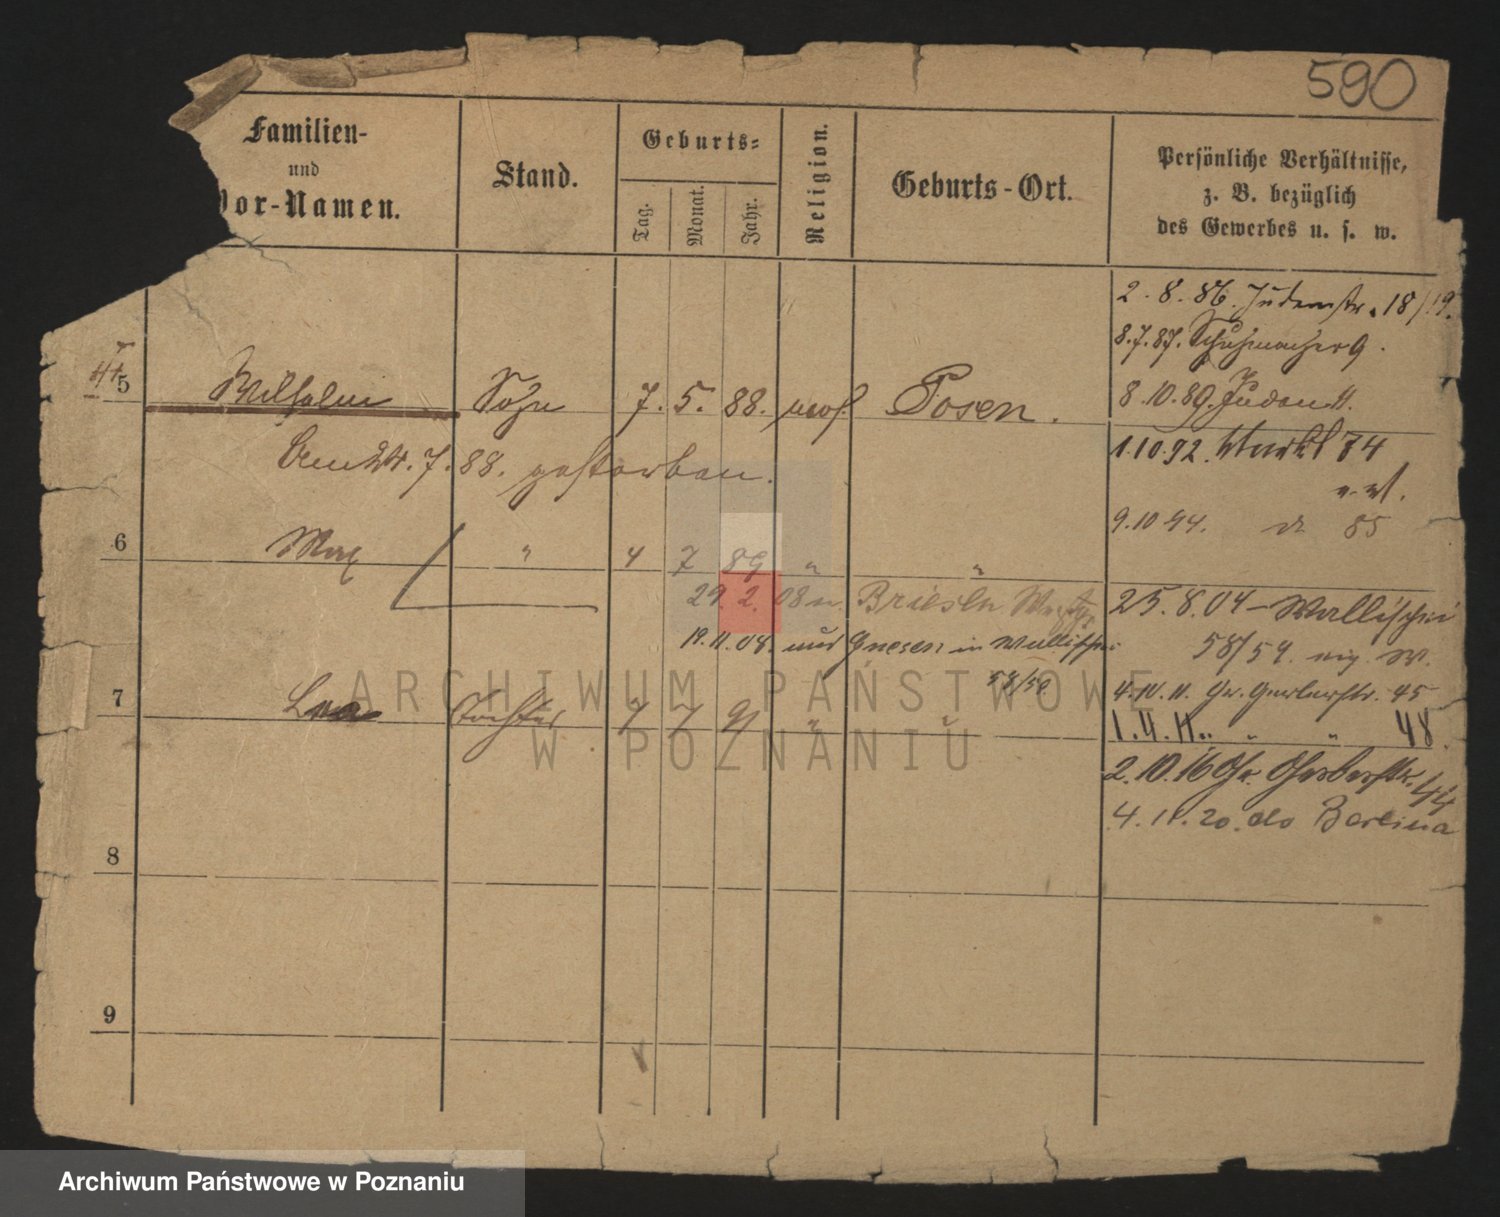 590
Familien-
und
Vor-Namen.
Stand.
Geburts-
Tag.
Monat.
Jahr.
Religion.
Geburts-Ort.
Persönliche Verhältnisse,
z. B. bezüglich
des Gewerbes u. s. w.
2.8.86. Judenstr. 18/19.
8.7.87. Schuhmacher 9.
5 Wilhelm Sohn 7. 5. 88. mos. Posen.
8.10.89. Juden 11.
Am 24.7.88. gestorben.
1.10.92. 74
9.10.94. do 85
6 Max " 4 7 89 " "
29. 2. 08 n. Briesen Westpr.
25.8.04 - Wallischei
19.11.08. aus Gnesen in Wallischei
58/59
58/59.
7 Tochter 7 7 91 " "
4.10.11. Gr. Gerberstr. 45
1.4.11. " " 48.
2.10.16 Gr. Gerberstr. 44
4.11.20. do Berlina
8
9
ARCHIWUM PAŃSTWOWE
W POZNANIU
Archiwum Państwowe w Poznaniu